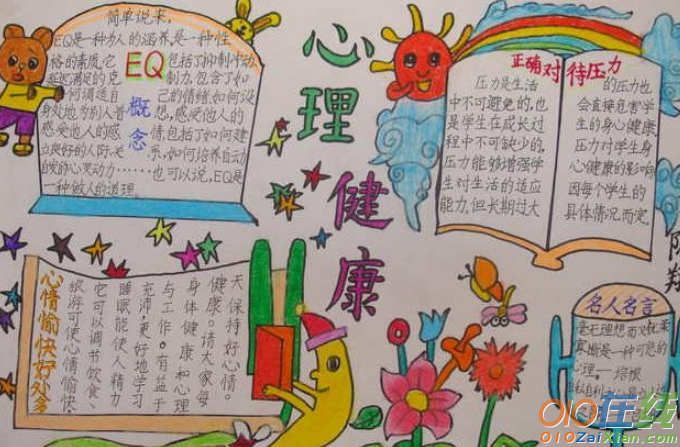 简单说来,
EQ是一种为人的涵养,是一种性
格的素质,它 包括了抑制冲动
延迟满足的克 制力,包含了如
何调适自 己的情绪,如何设
身处地为别人着 想,感受他人的
感受他人的感 情,包括了如何建
立良好的人际关 系,如何培养自动
自发的心灵动力……也可以说,EQ是
一种做人的道理.
EQ
概念
心理健康
正确对待压力
压力是生活
中不可避免的,也
是学生在成长过
程中不可缺少的,
压力能够增强学
生对生活的适应
能力,但长期过大
的压力也
会直接危害学
生的身心健康
压力对学生身
心健康的影响
因每个学生的
具体情况而定.
心情愉快好处多
旅游可使心情愉快
它可以调节饮食、
睡眠能使人精力
充沛,更好地学习
与工作。有益于
身体健康和心理
健康。请大家每
天保持好心情。
名人名言
毫无理想而又优柔
寡断是一种可悲的
心理——培根
010在线
010ZaiXian.com